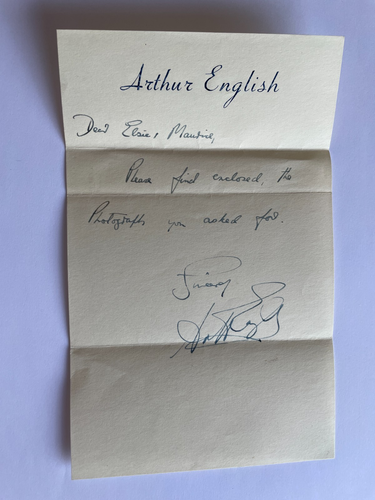 Arthur English
Dear Elsie & Maurice,
Please find enclosed, the
Photographs you asked for.
Sincerely